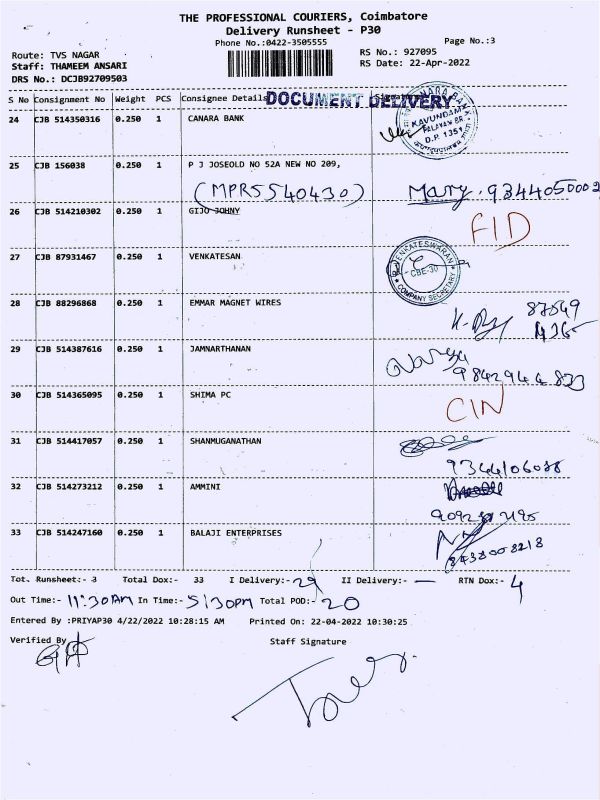 THE PROFESSIONAL COURIERS, Coimbatore
Delivery Runsheet - P30
Phone No.:0422-3505555
Page No.:3
Route: TVS NAGAR
RS No.: 927095
Staff: THAMEEM ANSARI
RS Date: 22-Apr-2022
DRS No.: DCJB92709503
S No Consignment No Weight PCS Consignee Details Signature
DOCUMENT DELIVERY
24 CJB 514350316 0.250 1 CANARA BANK
CANARA BANK
KAVUNDAM
PALAYAM BR
D.P. 1351
25 CJB 156038 0.250 1 P J JOSEOLD NO 52A NEW NO 209,
(MPR5540430) Mary. 9344050002
26 CJB 514210302 0.250 1 GIJO JOHNY FID
27 CJB 87931467 0.250 1 VENKATESAN
VENKATESWARAN
CBE-30
COMPANY SECRETARY
28 CJB 88296868 0.250 1 EMMAR MAGNET WIRES
87549
29 CJB 514387616 0.250 1 JAMNARTHANAN
30 CJB 514365095 0.250 1 SHIMA PC CIN
31 CJB 514417057 0.250 1 SHANMUGANATHAN
9344106088
32 CJB 514273212 0.250 1 AMMINI
33 CJB 514247160 0.250 1 BALAJI ENTERPRISES
8438008218
Tot. Runsheet:- 3 Total Dox:- 33 I Delivery:- 29 II Delivery:- — RTN Dox:- 4
Out Time:- 11:30AM In Time:- 5:30PM Total POD:- 20
Entered By :PRIYAP30 4/22/2022 10:28:15 AM Printed On: 22-04-2022 10:30:25
Verified By Staff Signature